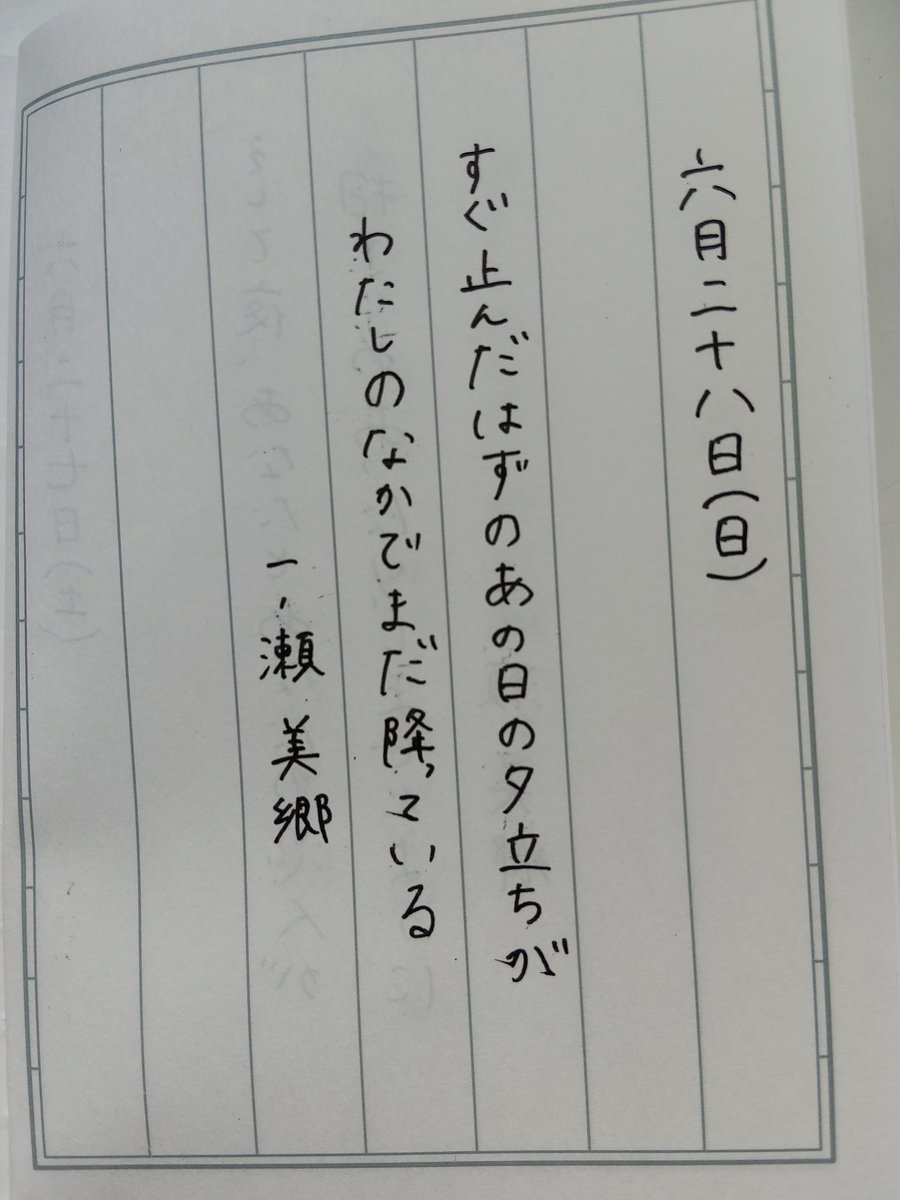 六月二十八日(日)
すぐ止んだはずのあの日の夕立ちが
わたしのなかでまだ降っている
一ノ瀬 美郷